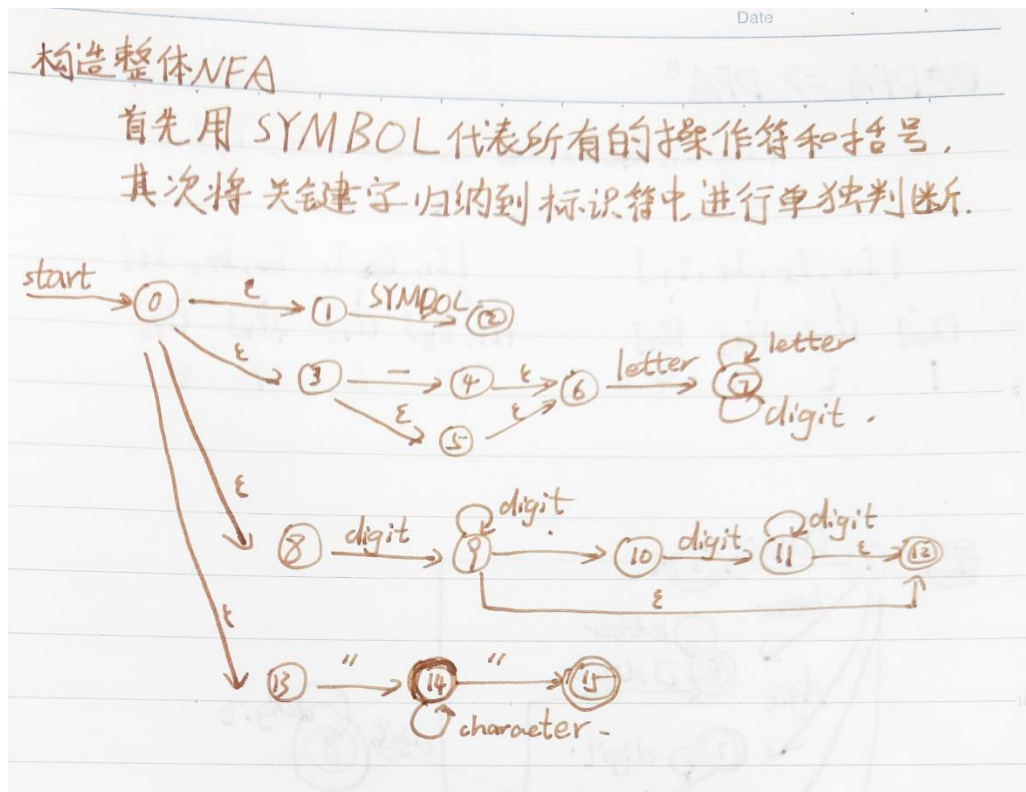 Date
构造整体NFA
首先用 SYMBOL 代表所有的操作符和括号,
其次将关键字归纳到标识符中进行单独判断.
start 0 ε 1 SYMBOL 2
ε 3 — 4 ε 6 letter 7 letter
ε 5 ε digit .
ε
8 digit 9 digit . 10 digit 11 digit ε 12
ε
ε
13 " 14 " 15
character